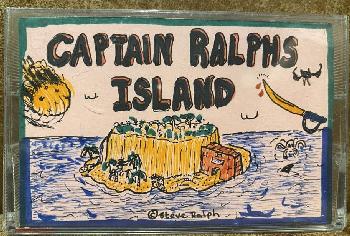 CAPTAIN RALPHS
ISLAND
©Steve Ralph